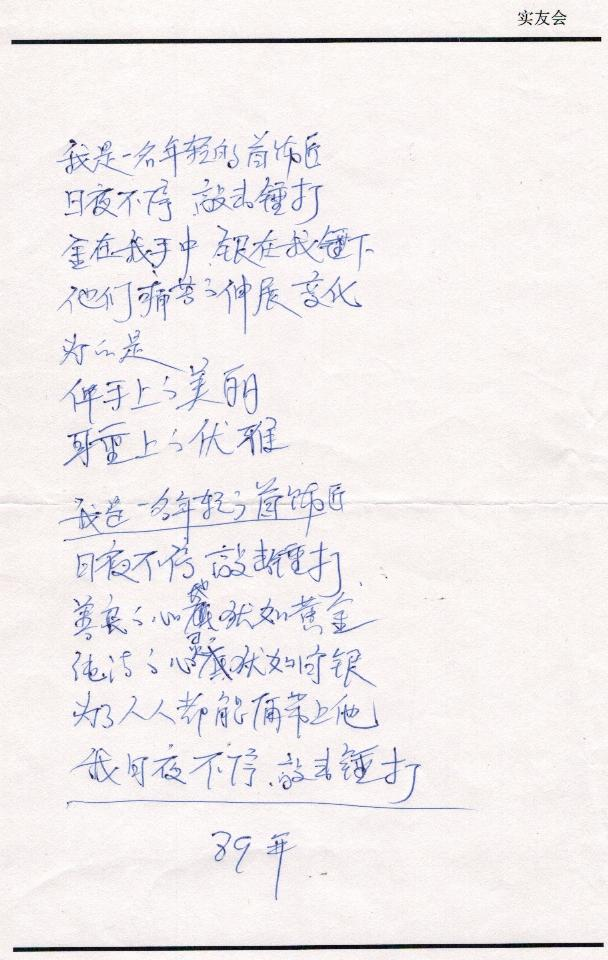 实友会
我是一名年轻的首饰匠
日夜不停 敲击锤打
金在我手中 银在我锤下
他们痛苦的伸展变化
为的是
伸手上的美丽
耳垂上的优雅
我是一名年轻的首饰匠
日夜不停 敲击锤打
善良的心地犹如黄金
纯洁的心灵犹如白银
为了人人都能佩带上他
我日夜不停 敲击锤打
89年